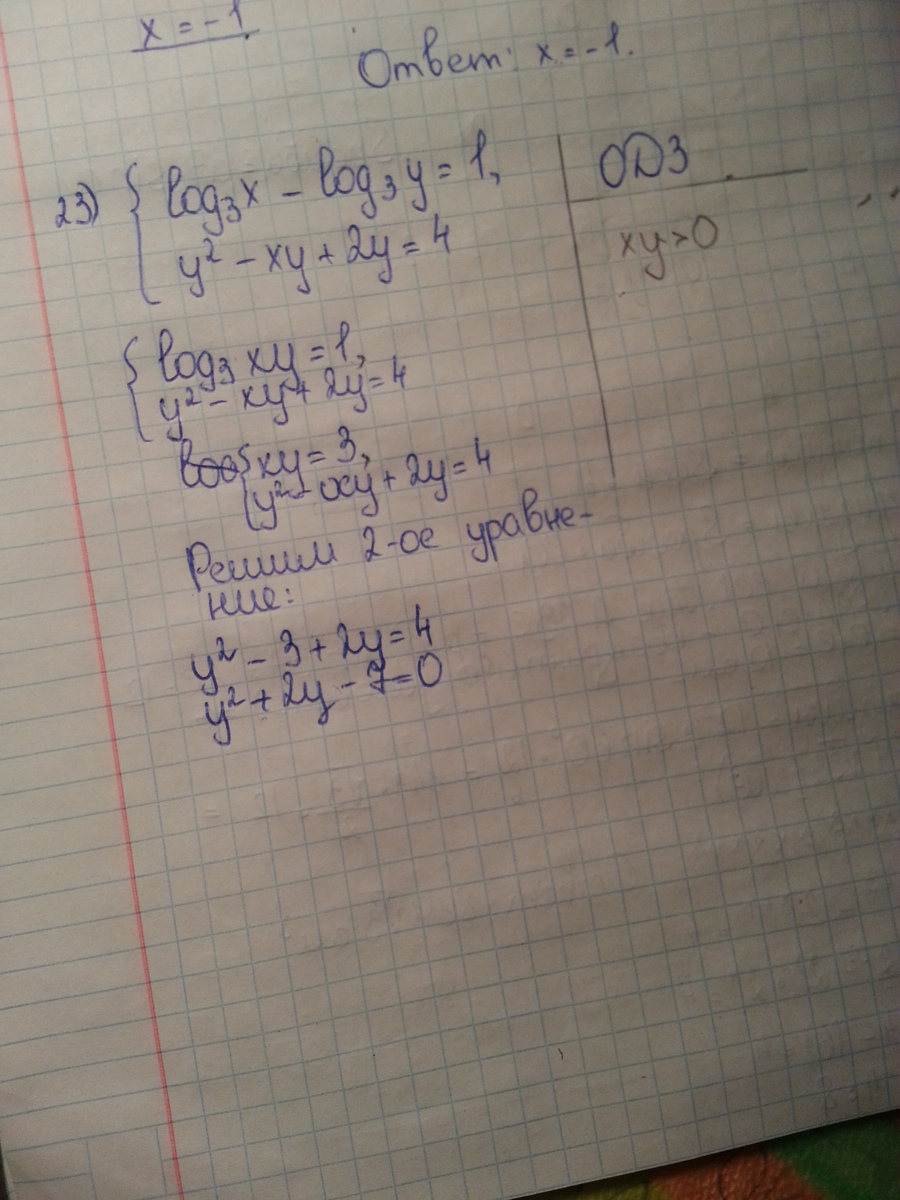 x = -1
Ответ: x = -1.
23) { log₃x - log₃y = 1,
y² - xy + 2y = 4
ОДЗ
xy > 0
{ log₃ xy = 1,
y² - xy + 2y = 4
{ xy = 3,
y² - xy + 2y = 4
Решим 2-ое уравне-
ние:
y² - 3 + 2y = 4
y² + 2y - 7 = 0